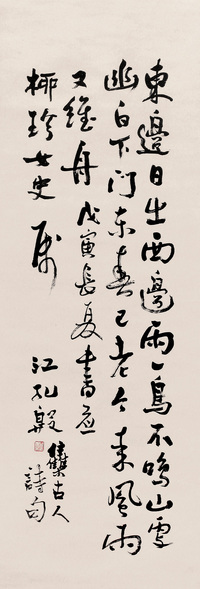 東邊日出西邊雨一鳥不鳴山更
幽白下門東春已老今來風雨
又維舟 戊寅長夏書應
柳珍女史屬
江孔殷
集古人
詩句